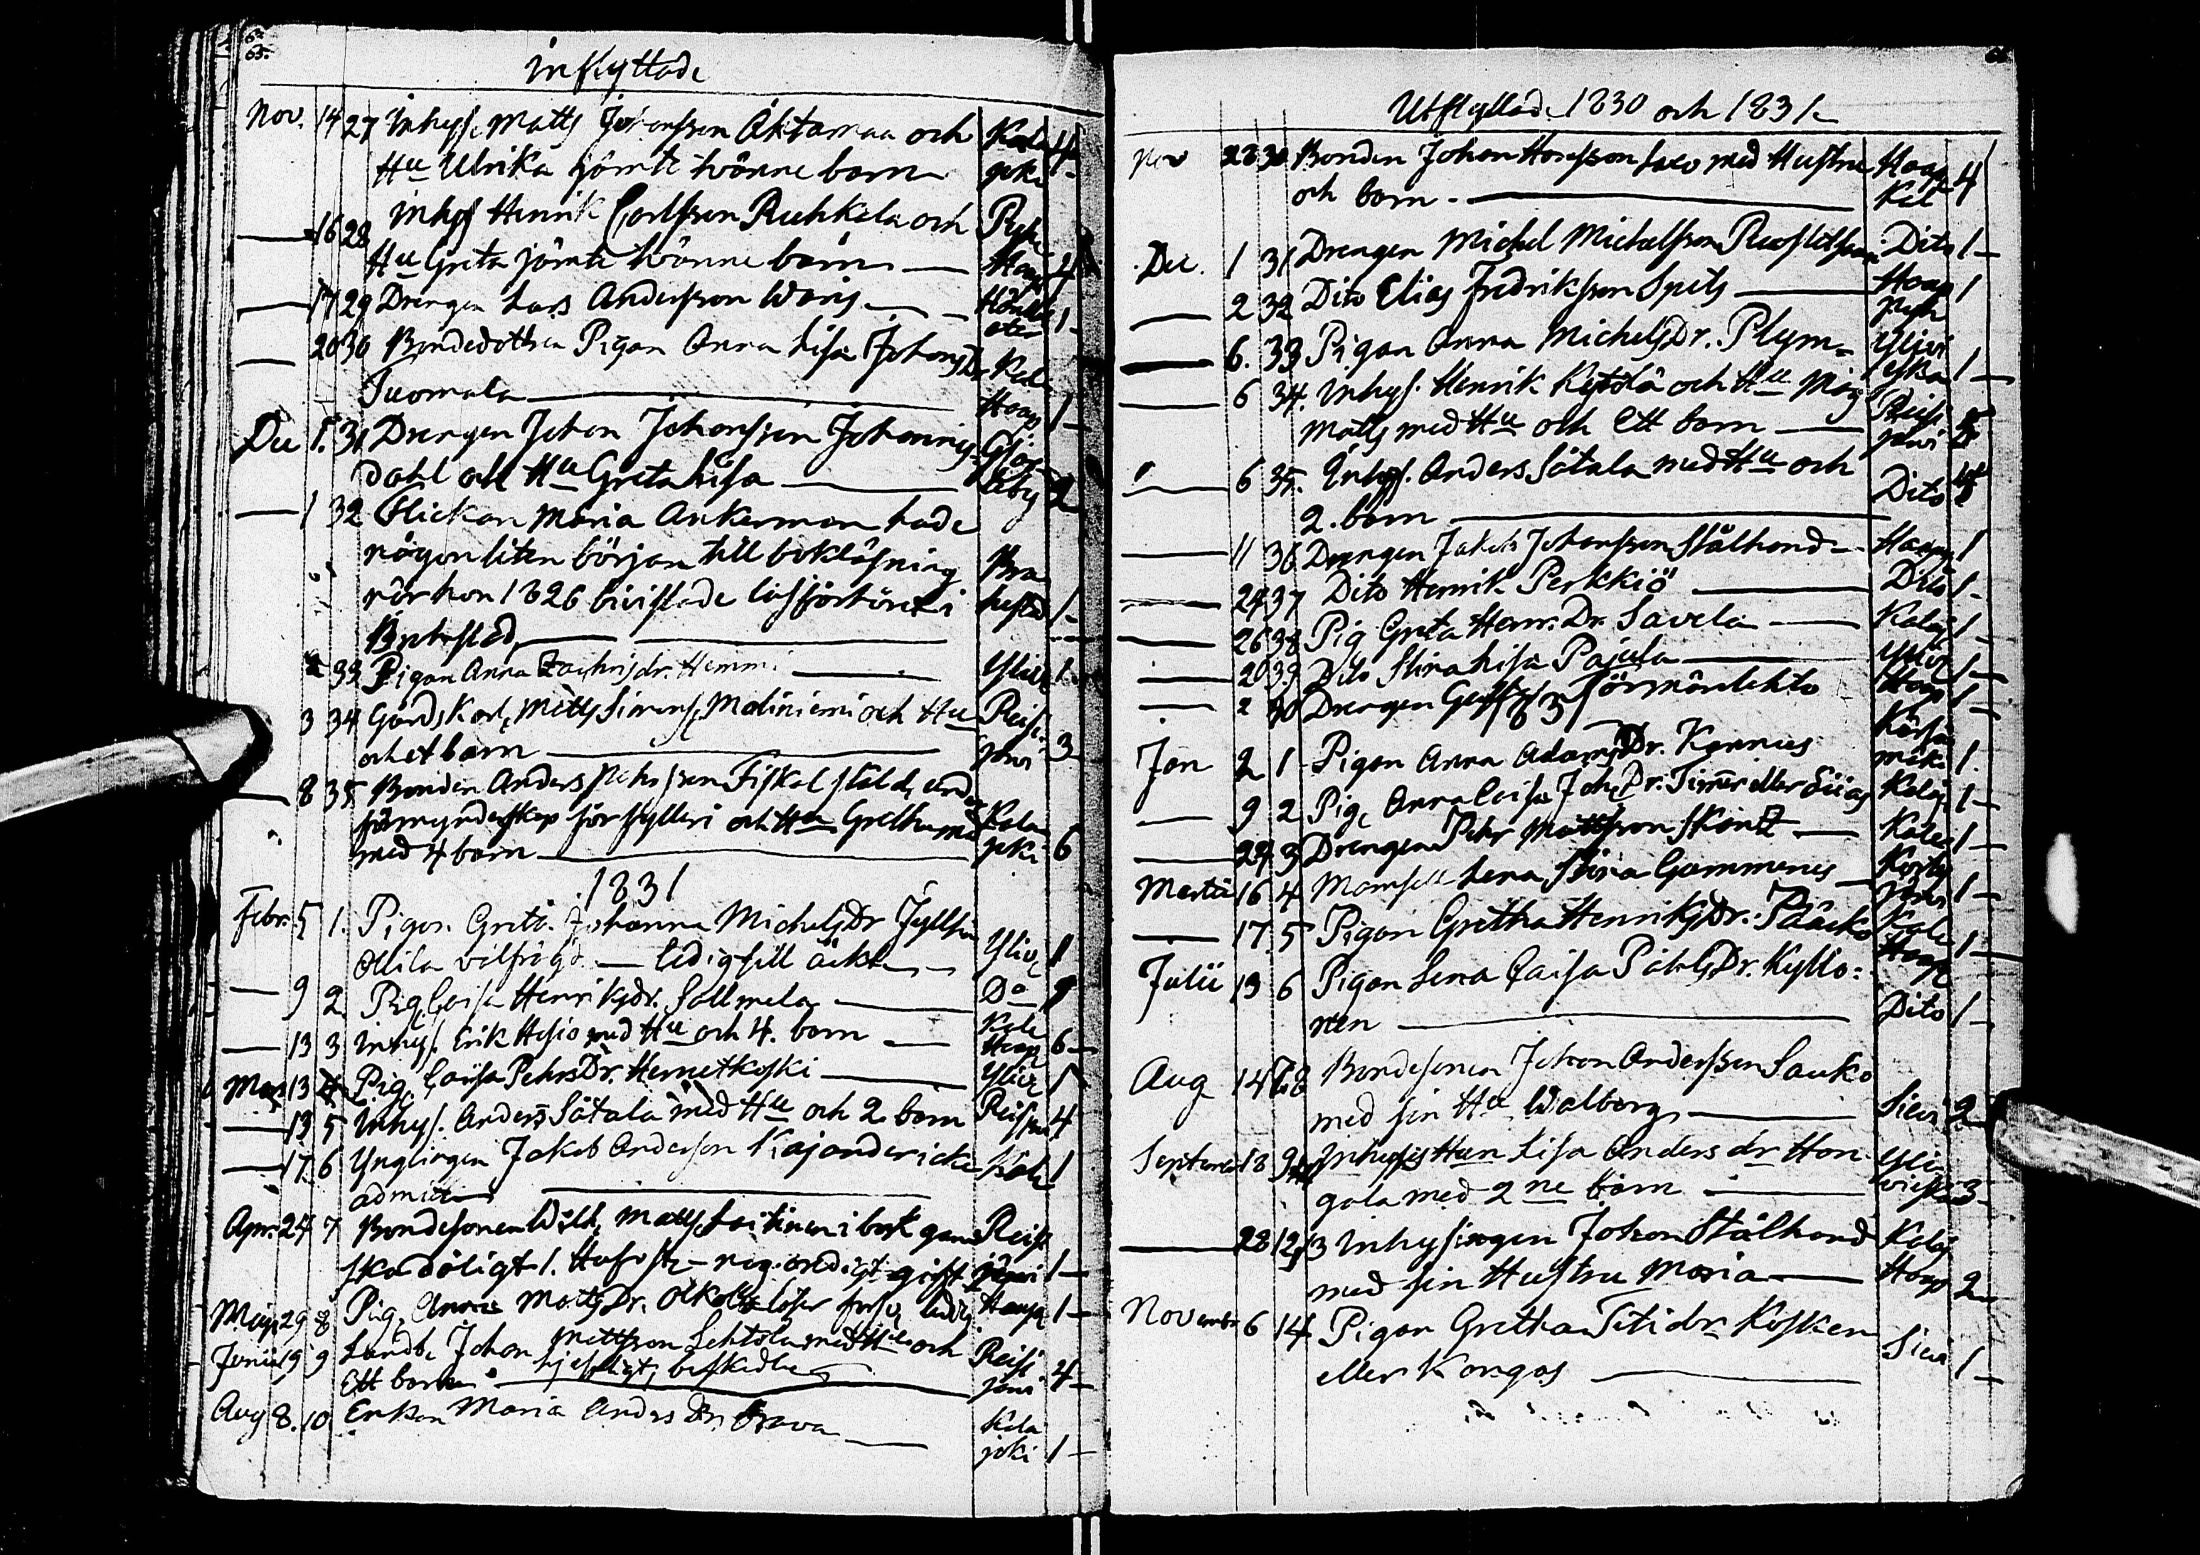 65.
inflyttade
Nov. 14 27 Inhys. Matts Johansson Aktamaa och Kala
Hu Ulrika jämte tvänne barn joki 4
16 28 inhys Henrik Carlsson Ruhkala och Pyhä
Hu Greta jämte tvänne barn Haap 4
17 29 Drengen Lars Andersson Waris 1
20 30 Bondedottren Pigan Anna Lisa Johans Dr Kala
Juomala Haap 1
Dec 1. 31 Drengen Johan Johansson Johannis-
dahl och Hu Greta Lisa 2
1 32 Flickan Maria Ankerman hade
någon liten början till bokläsning Bra
när hon 1826 bivistade läsförhöret i hestad 1
Brahestad
33 Pigan Anna Zachrisdr. Hemmi Yliv 1
3 34 Gårdskarl Matts Simons. Maliniemi och Hu Reis
och et barn jervi 3
8 35 Bonden Anders Pehrsson Fiskal stäld under
förmynderskap för fylleri och Hu Gretha Kala
med 4 barn joki 6
1831
Febr. 5 1. Pigan Greta Johanna Michels Dr
Ollila ledig till äkta Yliv 1
9 2 Pig Caisa Henriksdr. Sallmela Do
13 3 Inhys. Erik Hesio med Hu och 4. barn Kala Haap 6
Mars 13 4 Pig. Caisa Pehrs Dr. Hernetkoski Yliv 1
13 5 Inhys. Anders Sätala med Hu och 2 barn Reisj 4
17 6 Ynglingen Jakob Andersson Kajander icke Kala 1
admitt
Apr. 24 7 Bondesonen Wilh. Matts. Laitinen i bok gan Reisj
skadeligt 1. gift järvi 1
Maji 29 8 Pig. Anna Matts Dr. ledig Haap 1
Junii 19 9 Landb. Johan Mattsson Lehtola med Hu och Reisj
Ett barn beskedl. jervi 4
Aug 8. 10 Enkan Maria Anders Dr. Orava Kala
joki 1
Utflyttade 1830 och 1831
Nov 28 30. Bonden Johan Hansson Saxo med Hustru Haap
och barn Kal 4
Dec. 1 31 Drengen Michel Michelsson Dito 1
2 32 Dito Elias Fredriksson Spets Haap 1
6. 33 Pigan Anna Michels Dr. Plym- Ylivi
6 34. Inhys. Henrik Kytölä och Hu Reisj
Matts med Hu och Ett barn jervi
6 35. Inhys. Anders Sätala med Hu och Dito
2. barn
11 36 Drengen Jakob Johansson Stålhand Haap 1
24 37 Dito Henrik Perkkiö Dito 1
26 38 Pig Greta Henr. Dr. Savela Kalaj 1
20 39 Dito Stina Lisa Pajula Yliv 1
2 40 Drengen Gust. Törmänlehto Haap 1
1831
Jan 2 1 Pigan Anna Adams Dr. Kannus Kärsä
mäki 1
9 2 Pig. Anna Caisa Joh. Dr. Timar eller Siias Kalaj 1
24 3 Drengen Pehr Mattsson Skantz Kalaj 1
Martii 16 4 Mamsell Lena Stina Gummerus 1
17 5 Pigan Gretha Henriks Dr. Pääcko Kala Haap 1
Julii 13 6 Pigan Lena Caisa Påhls Dr. Kyllö-
nen Dito 1
Aug 14 8 Bondesonen Johan Andersson Sauko
med sin Hu Walborg Sievi 2
September 18 Inhyses Hun Lisa Anders dr Hon Yli
gala med 2ne barn vieska 3
28 12 13 Inhysingen Johan Stålhand Kalaj
med sin Hustru Maria Haap 2
November 6 14 Pigan Gretha Titi dr Kosken
eller Kangas Sievi 1